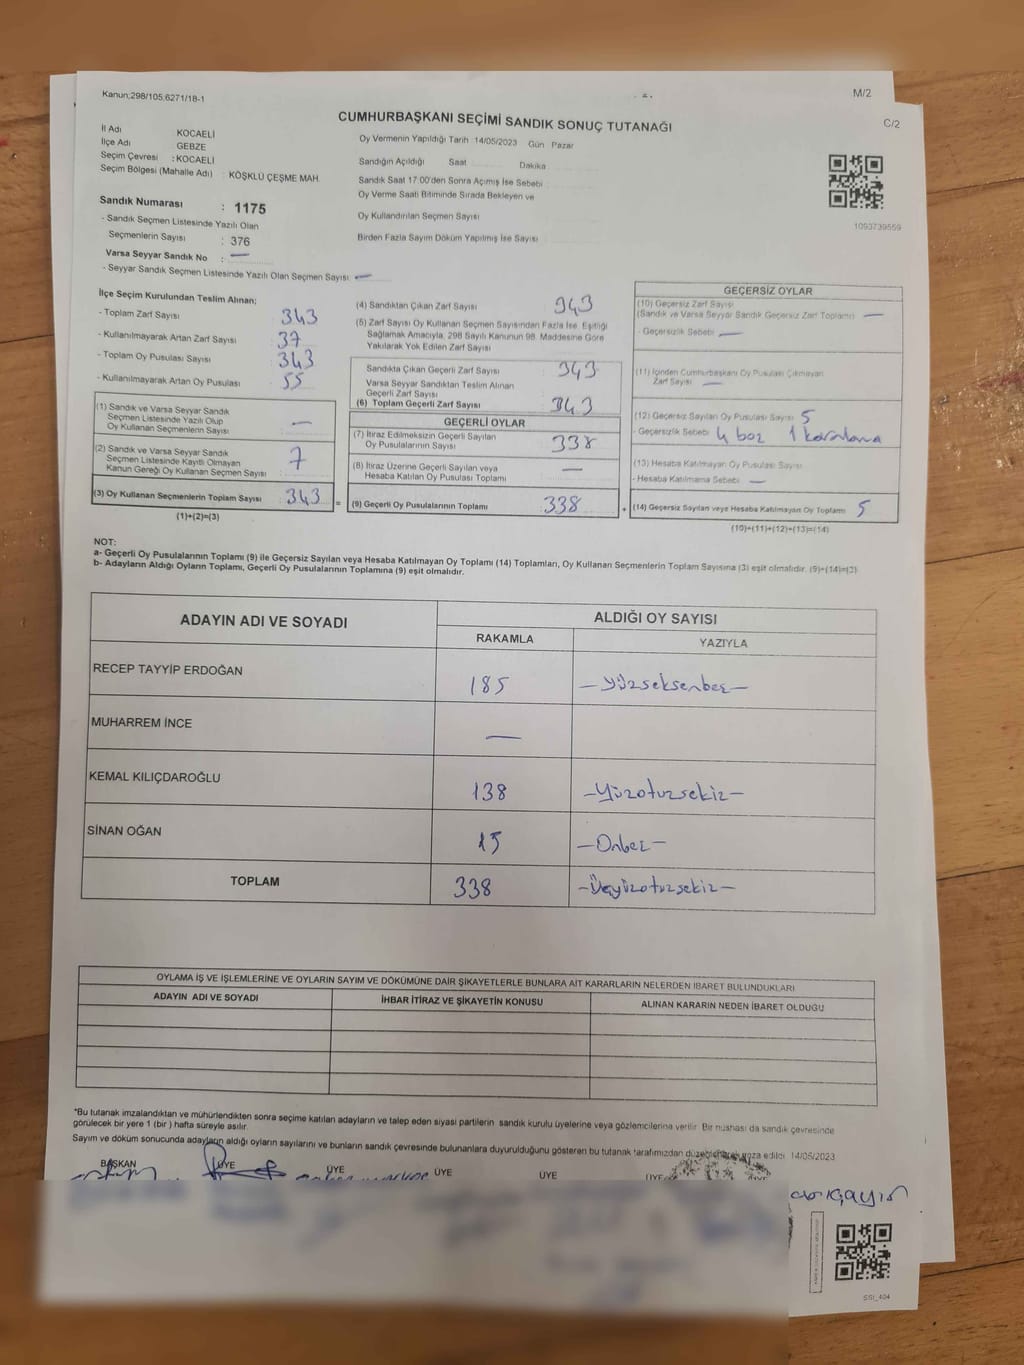 Kanun;298/105,6271/18-1
M/2
C/2
CUMHURBAŞKANI SEÇİMİ SANDIK SONUÇ TUTANAĞI
İl Adı KOCAELİ
İlçe Adı GEBZE
Seçim Çevresi : KOCAELİ
Seçim Bölgesi (Mahalle Adı) : KÖŞKLÜ ÇEŞME MAH.
Sandık Numarası : 1175
- Sandık Seçmen Listesinde Yazılı Olan
Seçmenlerin Sayısı : 376
Varsa Seyyar Sandık No : —
- Seyyar Sandık Seçmen Listesinde Yazılı Olan Seçmen Sayısı: —
Oy Vermenin Yapıldığı Tarih 14/05/2023 Gün Pazar
Sandığın Açıldığı Saat Dakika
Sandık Saat 17:00'den Sonra Açımış İse Sebebi
Oy Verme Saati Bitiminde Sırada Bekleyen ve
Oy Kullandırılan Seçmen Sayısı
Birden Fazla Sayım Döküm Yapılmış İse Sayısı
1093739559
İlçe Seçim Kurulundan Teslim Alınan;
- Toplam Zarf Sayısı 343
- Kullanılmayarak Artan Zarf Sayısı 37
- Toplam Oy Pusulası Sayısı 343
- Kullanılmayarak Artan Oy Pusulası 55
(1) Sandık ve Varsa Seyyar Sandık
Seçmen Listesinde Yazılı Olup
Oy Kullanan Seçmenlerin Sayısı —
(2) Sandık ve Varsa Seyyar Sandık
Seçmen Listesinde Kayıtlı Olmayan
Kanun Gereği Oy Kullanan Seçmen Sayısı 7
(3) Oy Kullanan Seçmenlerin Toplam Sayısı 343 =
(1)+(2)=(3)
(4) Sandıktan Çıkan Zarf Sayısı 343
(5) Zarf Sayısı Oy Kullanan Seçmen Sayısından Fazla İse, Eşitliği
Sağlamak Amacıyla, 298 Sayılı Kanunun 98. Maddesine Göre
Yakılarak Yok Edilen Zarf Sayısı
Sandıkta Çıkan Geçerli Zarf Sayısı 343
Varsa Seyyar Sandıktan Teslim Alınan
Geçerli Zarf Sayısı
(6) Toplam Geçerli Zarf Sayısı 343
GEÇERLİ OYLAR
(7) İtiraz Edilmeksizin Geçerli Sayılan
Oy Pusulalarının Sayısı 338
(8) İtiraz Üzerine Geçerli Sayılan veya
Hesaba Katılan Oy Pusulası Toplamı —
(9) Geçerli Oy Pusulalarının Toplamı 338 +
GEÇERSİZ OYLAR
(10) Geçersiz Zarf Sayısı
(Sandık ve Varsa Seyyar Sandık Geçersiz Zarf Toplamı) —
- Geçersizlik Sebebi —
(11) İçinden Cumhurbaşkanı Oy Pusulası Çıkmayan
Zarf Sayısı —
(12) Geçersiz Sayılan Oy Pusulası Sayısı 5
- Geçersizlik Sebebi 4 boz 1 karalama
(13) Hesaba Katılmayan Oy Pusulası Sayısı
- Hesaba Katılmama Sebebi —
(14) Geçersiz Sayılan veya Hesaba Katılmayan Oy Toplamı 5
(10)+(11)+(12)+(13)=(14)
NOT:
a- Geçerli Oy Pusulalarının Toplamı (9) ile Geçersiz Sayılan veya Hesaba Katılmayan Oy Toplamı (14) Toplamları, Oy Kullanan Seçmenlerin Toplam Sayısına (3) eşit olmalıdır. (9)+(14)=(3)
b- Adayların Aldığı Oyların Toplamı, Geçerli Oy Pusulalarının Toplamına (9) eşit olmalıdır.
ADAYIN ADI VE SOYADI
ALDIĞI OY SAYISI
RAKAMLA YAZIYLA
RECEP TAYYİP ERDOĞAN 185 -Yüzseksenbeş-
MUHARREM İNCE —
KEMAL KILIÇDAROĞLU 138 -Yüzotuzsekiz-
SİNAN OĞAN 15 -Onbeş-
TOPLAM 338 -Üçyüzotuzsekiz-
OYLAMA İŞ VE İŞLEMLERİNE VE OYLARIN SAYIM VE DÖKÜMÜNE DAİR ŞİKAYETLERLE BUNLARA AİT KARARLARIN NELERDEN İBARET BULUNDUKLARI
ADAYIN ADI VE SOYADI İHBAR İTİRAZ VE ŞİKAYETİN KONUSU ALINAN KARARIN NEDEN İBARET OLDUĞU
*Bu tutanak imzalandıktan ve mühürlendikten sonra seçime katılan adayların ve talep eden siyasi partilerin sandık kurulu üyelerine veya gözlemcilerine verilir. Bir nüshası da sandık çevresinde
görülecek bir yere 1 (bir) hafta süreyle asılır.
Sayım ve döküm sonucunda adayların aldığı oyların sayılarını ve bunların sandık çevresinde bulunanlara duyurulduğunu gösteren bu tutanak tarafımızdan düzenlenerek imza edildi. 14/05/2023
BAŞKAN ÜYE ÜYE ÜYE ÜYE ÜYE ÜYE
SSI_404